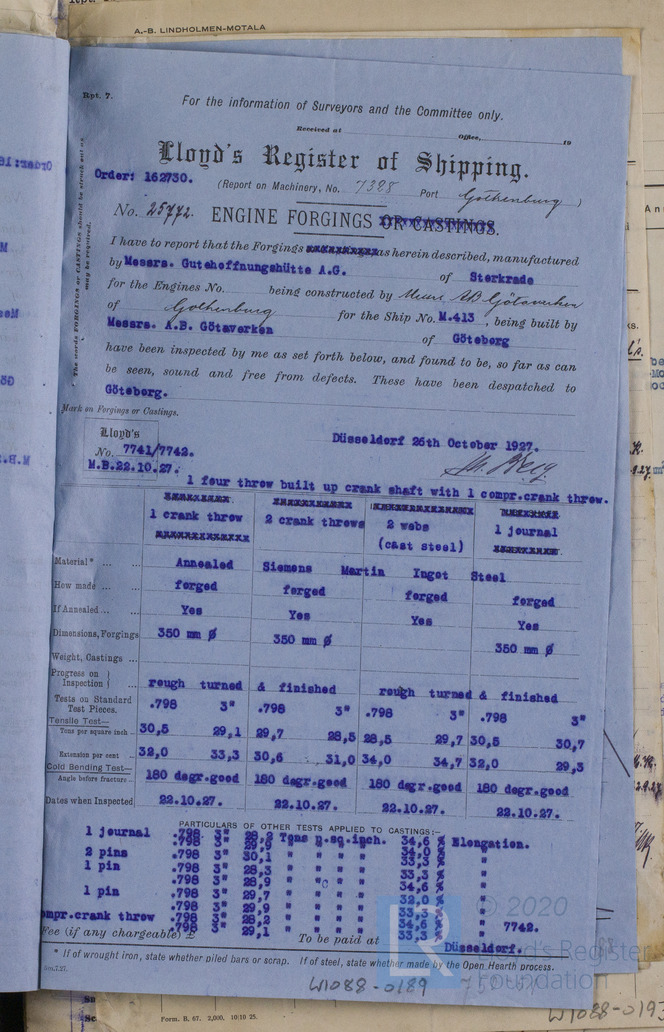 A.-B. LINDHOLMEN-MOTALA
Rpt. 7.
For the information of Surveyors and the Committee only.
Received at Office, 19
Lloyd's Register of Shipping.
Order: 162730.
(Report on Machinery, No. 7388 Port Gothenburg )
No. 25772. ENGINE FORGINGS OR CASTINGS.
The words FORGINGS or CASTINGS should be struck out as
may be required.
I have to report that the Forgings as herein described, manufactured
by Messrs. Gutehoffnungshütte A.G. of Sterkrade
for the Engines No. being constructed by Messrs AB Götaverken
of Gothenburg for the Ship No. M.413 , being built by
Messrs. A.B. Götaverken of Göteborg
have been inspected by me as set forth below, and found to be, so far as can
be seen, sound and free from defects. These have been despatched to
Göteborg.
Mark on Forgings or Castings.
Lloyd's
No. 7741/7742.
M.B.22.10.27.
Düsseldorf 26th October 1927.
1 four throw built up crank shaft with 1 compr.crank throw.
1 crank throw 2 crank throws 2 webs 1 journal
(cast steel)
Material* ... ... Annealed Siemens Martin Ingot Steel
How made ... ... forged forged forged forged
If Annealed ... ... Yes Yes Yes Yes
Dimensions, Forgings 350 mm Ø 350 mm Ø 350 mm Ø
Weight, Castings ...
Progress on
Inspection } ... rough turned & finished rough turned & finished
Tests on Standard
Test Pieces. .798 3" .798 3" .798 3" .798 3"
Tensile Test—
Tons per square inch 30,5 29,1 29,7 28,5 28,5 29,7 30,5 30,7
Extension per cent 32,0 33,3 30,6 31,0 34,0 34,7 32,0 29,3
Cold Bending Test—
Angle before fracture 180 degr.good 180 degr.good 180 degr.good 180 degr.good
Dates when Inspected 22.10.27. 22.10.27. 22.10.27. 22.10.27.
PARTICULARS OF OTHER TESTS APPLIED TO CASTINGS:—
1 journal .798 3" 28,2 Tons p.sq.inch. 34,6 % Elongation.
.798 3" 29,9 " " " " 34,0 % "
2 pins .798 3" 30,1 " " " " 33,3 % "
1 pin .798 3" 28,3 " " " " 33,3 % "
.798 3" 28,9 " " " " 34,6 % "
1 pin .798 3" 29,7 " " " " 32,0 % "
.798 3" 29,9 " " " " 33,3 % "
ompr.crank throw .798 3" 28,2 " " " " 34,6 % " 7742.
.798 3" 29,1 " " " " 33,3 % "
Fee (if any chargeable) £ To be paid at Düsseldorf.
* If of wrought iron, state whether piled bars or scrap. If of steel, state whether made by the Open Hearth process.
© 2020
Lloyd's Register
Foundation
W1088-0189
Form. B. 67. 2,000. 10|10 25.